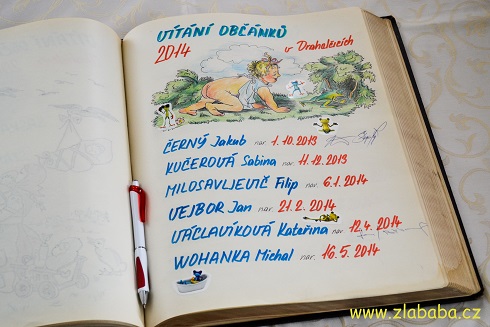 VÍTÁNÍ OBČÁNKŮ
2014 v Drahelčicích
ČERNÝ Jakub nar. 1.10.2013
KUČEROVÁ Sabina nar. 11.12.2013
MILOSAVLJEVIČ Filip nar. 6.1.2014
VEJBOR Jan nar. 21.2.2014
VÁCLAVÍKOVÁ Kateřina nar. 12.4.2014
WOHANKA Michal nar. 16.5.2014
www.zlababa.cz